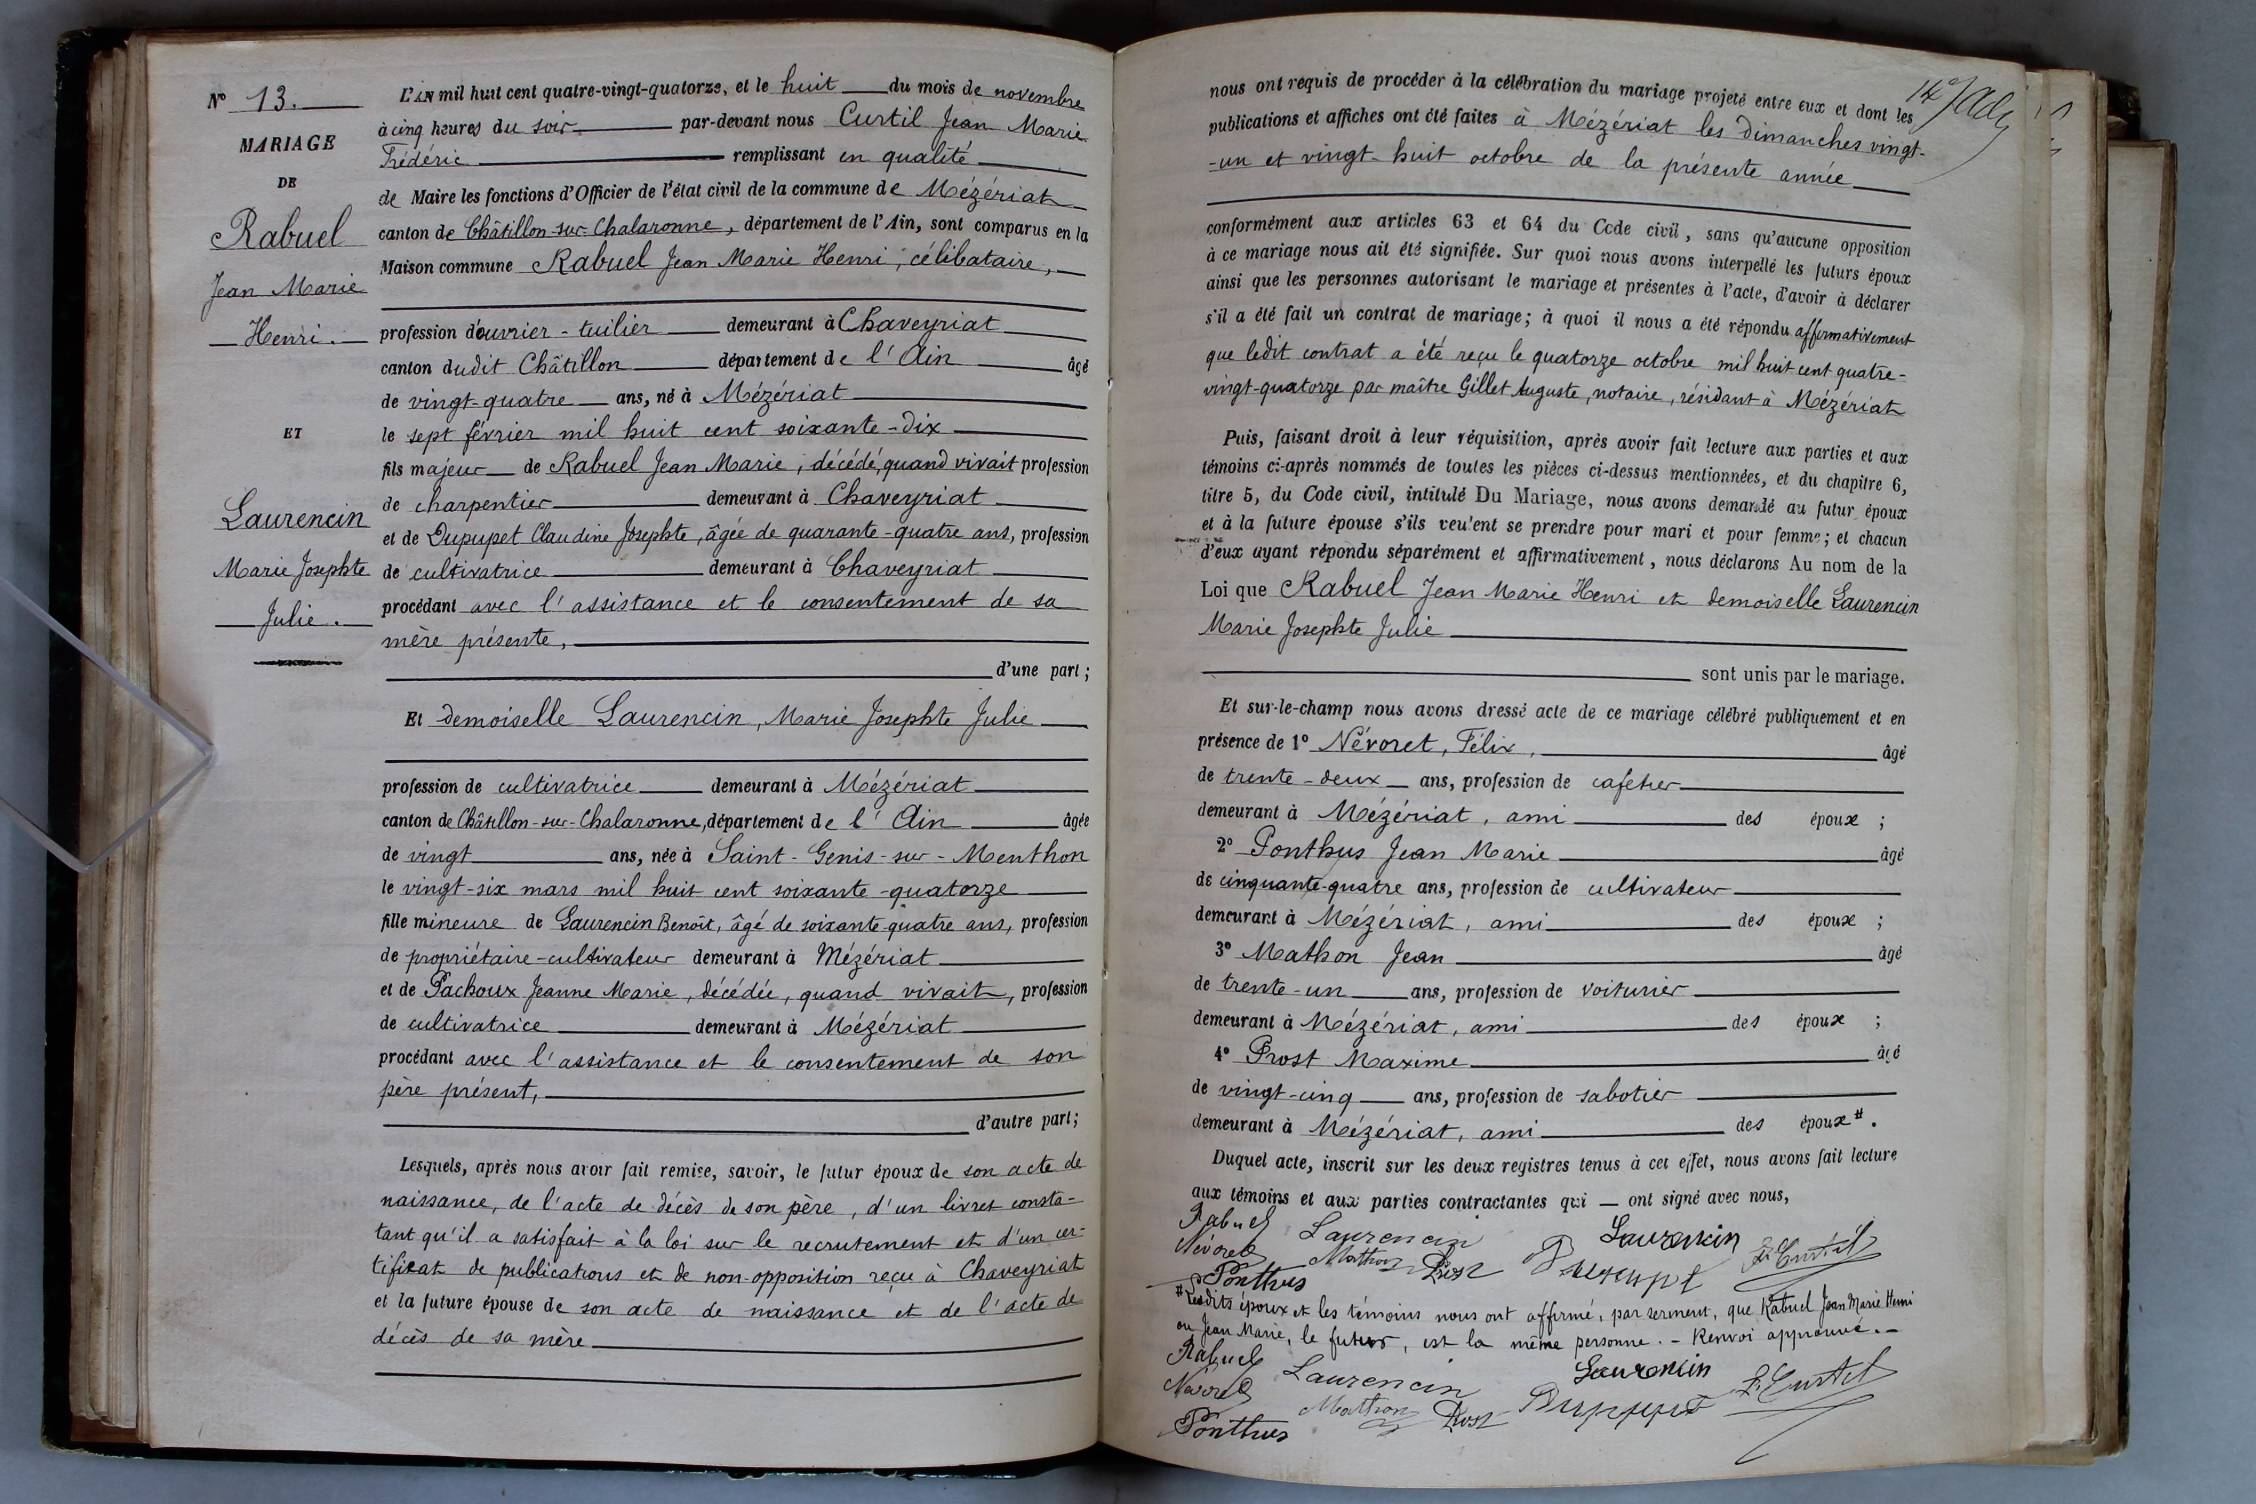 N° 13.
MARIAGE
DE
Rabuel
Jean Marie
Henri.
ET
Laurencin
Marie Josephte
Julie.
L'AN mil huit cent quatre-vingt-quatorze, et le huit du mois de novembre
à cinq heures du soir par-devant nous Curtil Jean Marie
Frédéric remplissant en qualité
de Maire les fonctions d'Officier de l'état civil de la commune de Mézériat
canton de Châtillon-sur-Chalaronne, département de l'Ain, sont comparus en la
Maison commune Rabuel Jean Marie Henri, célibataire,
profession d'ouvrier-tuilier demeurant à Chaveyriat
canton dudit Châtillon département de l'Ain âgé
de vingt-quatre ans, né à Mézériat
le sept février mil huit cent soixante-dix
fils majeur de Rabuel Jean Marie, décédé, quand vivait profession
de charpentier demeurant à Chaveyriat
et de Dupupet Claudine Josephte, âgée de quarante-quatre ans, profession
de cultivatrice demeurant à Chaveyriat
procédant avec l'assistance et le consentement de sa
mère présente,
d'une part;
Et demoiselle Laurencin, Marie Josephte Julie
profession de cultivatrice demeurant à Mézériat
canton de Châtillon-sur-Chalaronne, département de l'Ain âgée
de vingt ans, née à Saint-Genis-sur-Menthon
le vingt-six mars mil huit cent soixante-quatorze
fille mineure de Laurencin Benoît, âgé de soixante-quatre ans, profession
de propriétaire-cultivateur demeurant à Mézériat
et de Pachoux Jeanne Marie, décédée, quand vivait, profession
de cultivatrice demeurant à Mézériat
procédant avec l'assistance et le consentement de son
père présent,
d'autre part;
Lesquels, après nous avoir fait remise, savoir, le futur époux de son acte de
naissance, de l'acte de décès de son père, d'un livret consta-
tant qu'il a satisfait à la loi sur le recrutement et d'un cer-
tificat de publications et de non-opposition reçu à Chaveyriat
et la future épouse de son acte de naissance et de l'acte de
décès de sa mère
nous ont requis de procéder à la célébration du mariage projeté entre eux et dont les
publications et affiches ont été faites à Mézériat les dimanches vingt-
-un et vingt-huit octobre de la présente année
conformément aux articles 63 et 64 du Code civil, sans qu'aucune opposition
à ce mariage nous ait été signifiée. Sur quoi nous avons interpellé les futurs époux
ainsi que les personnes autorisant le mariage et présentes à l'acte, d'avoir à déclarer
s'il a été fait un contrat de mariage; à quoi il nous a été répondu affirmativement
que ledit contrat a été reçu le quatorze octobre mil huit cent quatre-
vingt-quatorze par maître Gillet Auguste, notaire, résidant à Mézériat
Puis, faisant droit à leur réquisition, après avoir fait lecture aux parties et aux
témoins ci-après nommés de toutes les pièces ci-dessus mentionnées, et du chapitre 6,
titre 5, du Code civil, intitulé Du Mariage, nous avons demandé au futur époux
et à la future épouse s'ils veulent se prendre pour mari et pour femme; et chacun
d'eux ayant répondu séparément et affirmativement, nous déclarons Au nom de la
Loi que Rabuel Jean Marie Henri et demoiselle Laurencin
Marie Josephte Julie
sont unis par le mariage.
Et sur-le-champ nous avons dressé acte de ce mariage célébré publiquement et en
présence de 1° Névoret, Félix, âgé
de trente-deux ans, profession de cafetier
demeurant à Mézériat, ami des époux ;
2° Ponthus Jean Marie âgé
de cinquante-quatre ans, profession de cultivateur
demeurant à Mézériat, ami des époux ;
3° Mathon Jean âgé
de trente-un ans, profession de voiturier
demeurant à Mézériat, ami des époux ;
4° Prost Maxime âgé
de vingt-cinq ans, profession de sabotier
demeurant à Mézériat, ami des époux #.
Duquel acte, inscrit sur les deux registres tenus à cet effet, nous avons fait lecture
aux témoins et aux parties contractantes qui — ont signé avec nous,
Rabuel Laurencin Laurencin
Névoret Mathon Prost F. Curtil
Ponthus
# Lesdits époux et les témoins nous ont affirmé, par serment, que Rabuel Jean Marie Henri
ou Jean Marie, le futur, est la même personne. - Renvoi approuvé. -
Rabuel Laurencin Laurencin
Névoret Mathon Prost Dupupet F. Curtil
Ponthus